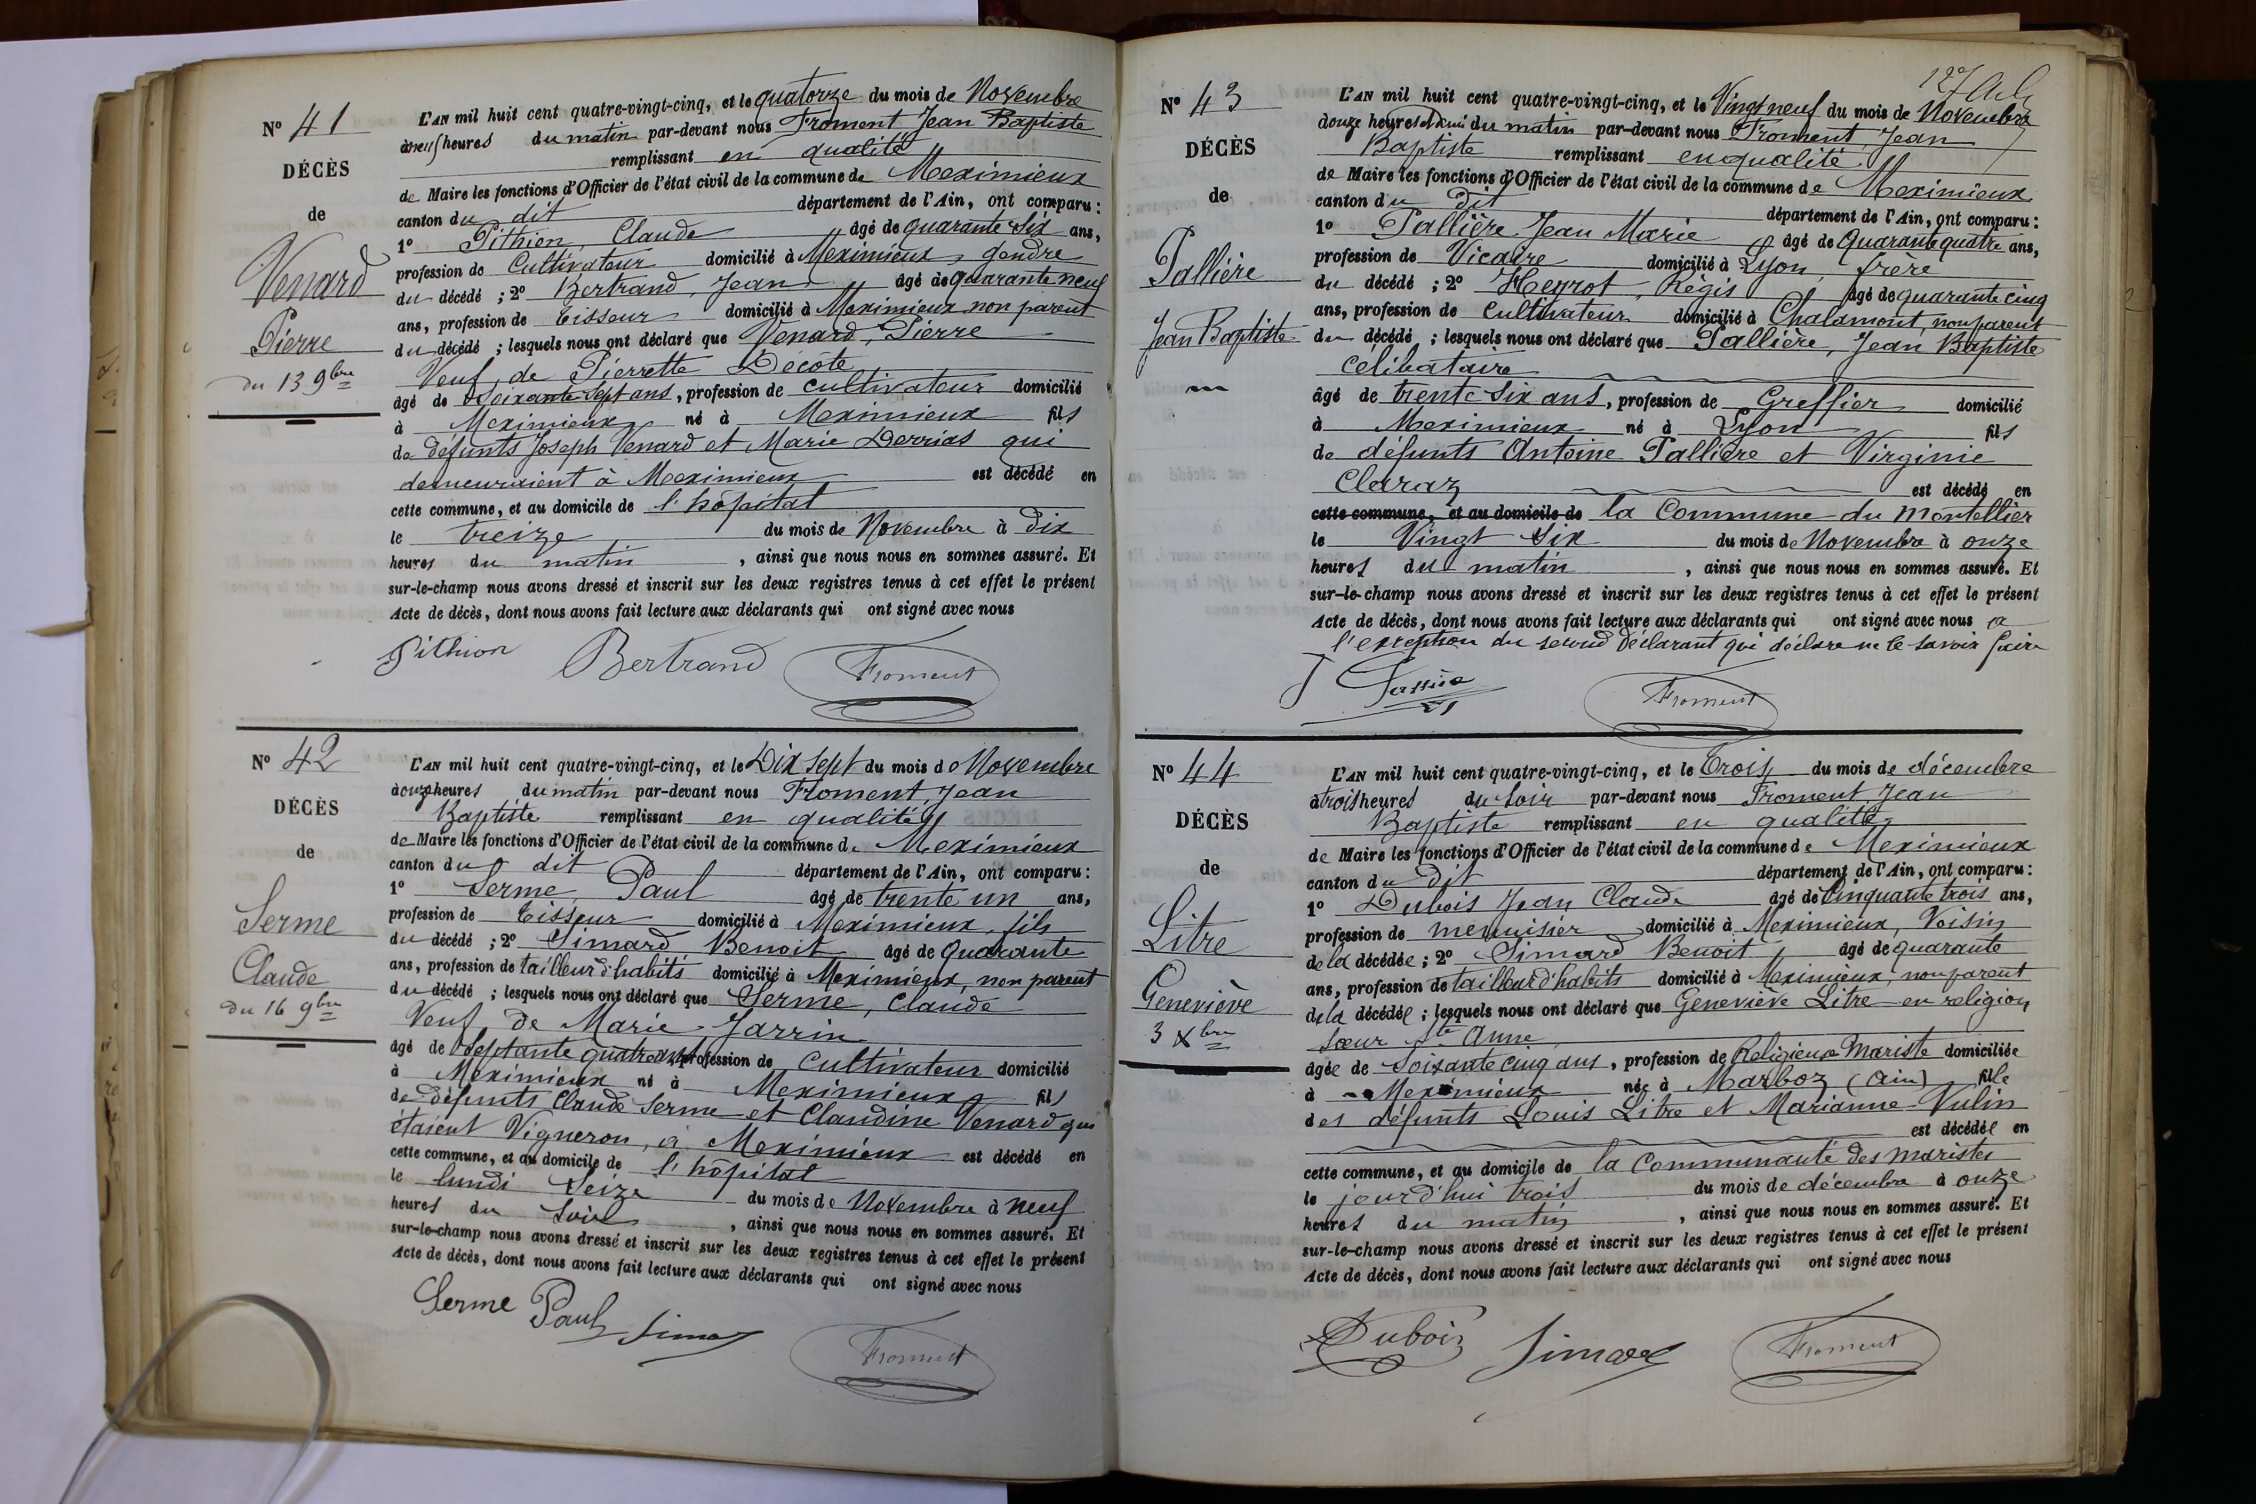 Nº 41
DÉCÈS
de
Venard
Pierre
du 13 9bre
L'AN mil huit cent quatre-vingt-cinq, et le quatorze du mois de Novembre
à neuf heures du matin par-devant nous Froment Jean Baptiste
remplissant en qualité
de Maire les fonctions d'Officier de l'état civil de la commune de Meximieux
canton du dit département de l'Ain, ont comparu :
1º Pithion, Claude âgé de quarante six ans,
profession de Cultivateur domicilié à Meximieux, gendre
du décédé ; 2º Bertrand, Jean âgé de quarante neuf
ans, profession de tisseur domicilié à Meximieux non parent
du décédé ; lesquels nous ont déclaré que Venard, Pierre
Veuf de Pierrette Décote
âgé de soixante sept ans, profession de cultivateur domicilié
à Meximieux né à Meximieux fils
de défunts Joseph Venard et Marie Derrias qui
demeuraient à Meximieux est décédé en
cette commune, et au domicile de l'hôpital
le treize du mois de Novembre à dix
heures du matin, ainsi que nous nous en sommes assuré. Et
sur-le-champ nous avons dressé et inscrit sur les deux registres tenus à cet effet le présent
Acte de décès, dont nous avons fait lecture aux déclarants qui ont signé avec nous
Pithion Bertrand Froment
Nº 42
DÉCÈS
de
Serme
Claude
du 16 9bre
L'AN mil huit cent quatre-vingt-cinq, et le Dix sept du mois de Novembre
à onze heures du matin par-devant nous Froment, Jean
Baptiste remplissant en qualité
de Maire les fonctions d'Officier de l'état civil de la commune de Meximieux
canton du dit département de l'Ain, ont comparu :
1º Serme, Paul âgé de trente un ans,
profession de tisseur domicilié à Meximieux, fils
du décédé ; 2º Simard Benoit âgé de quarante
ans, profession de tailleur d'habits domicilié à Meximieux, non parent
du décédé ; lesquels nous ont déclaré que Serme, Claude
Veuf de Marie Jarrin
âgé de septante quatre ans, profession de cultivateur domicilié
à Meximieux né à Meximieux fils
de défunts Claude Serme et Claudine Venard qui
étaient Vigneron, à Meximieux est décédé en
cette commune, et au domicile de l'hôpital
le lundi seize du mois de Novembre à neuf
heures du soir, ainsi que nous nous en sommes assuré. Et
sur-le-champ nous avons dressé et inscrit sur les deux registres tenus à cet effet le présent
Acte de décès, dont nous avons fait lecture aux déclarants qui ont signé avec nous
Serme Paul Simard Froment
127
Nº 43
DÉCÈS
de
Pallière
Jean Baptiste
L'AN mil huit cent quatre-vingt-cinq, et le Vingt neuf du mois de Novembre
douze heures et demi du matin par-devant nous Froment, Jean
Baptiste remplissant en qualité
de Maire les fonctions d'Officier de l'état civil de la commune de Meximieux
canton du Dit département de l'Ain, ont comparu :
1º Pallière Jean Marie âgé de Quarante quatre ans,
profession de Vicaire domicilié à Lyon, frère
du décédé ; 2º Heyrot, Régis âgé de quarante cinq
ans, profession de cultivateur domicilié à Chalamont, non parent
du décédé ; lesquels nous ont déclaré que Pallière, Jean Baptiste
célibataire
âgé de trente six ans, profession de Greffier domicilié
à Meximieux né à Lyon fils
de défunts Antoine Pallière et Virginie
Claraz est décédé en
cette commune, et au domicile de la Commune du Montellier
le Vingt six du mois de Novembre à onze
heures du matin, ainsi que nous nous en sommes assuré. Et
sur-le-champ nous avons dressé et inscrit sur les deux registres tenus à cet effet le présent
Acte de décès, dont nous avons fait lecture aux déclarants qui ont signé avec nous a
l'exception du second déclarant qui déclare ne le savoir faire
Froment
Nº 44
DÉCÈS
de
Litre
Geneviève
3 Xbre
L'AN mil huit cent quatre-vingt-cinq, et le Trois du mois de décembre
à trois heures du soir par-devant nous Froment Jean
Baptiste remplissant en qualité
de Maire les fonctions d'Officier de l'état civil de la commune de Meximieux
canton du Dit département de l'Ain, ont comparu :
1º Dubois Jean Claude âgé de Cinquante trois ans,
profession de menuisier domicilié à Meximieux, Voisin
de la décédée ; 2º Simard Benoit âgé de quarante
ans, profession de tailleur d'habits domicilié à Meximieux, non parent
de la décédée ; lesquels nous ont déclaré que Geneviève Litre en religion
Sœur Ste Anne
âgée de soixante cinq ans, profession de Religieuse Mariste domiciliée
à Meximieux née à Marboz (Ain) fille
des défunts Louis Litre et Marianne Vulin
est décédée en
cette commune, et au domicile de la Communauté des maristes
le jourd'hui trois du mois de décembre à onze
heures du matin, ainsi que nous nous en sommes assuré. Et
sur-le-champ nous avons dressé et inscrit sur les deux registres tenus à cet effet le présent
Acte de décès, dont nous avons fait lecture aux déclarants qui ont signé avec nous
Dubois Simard Froment